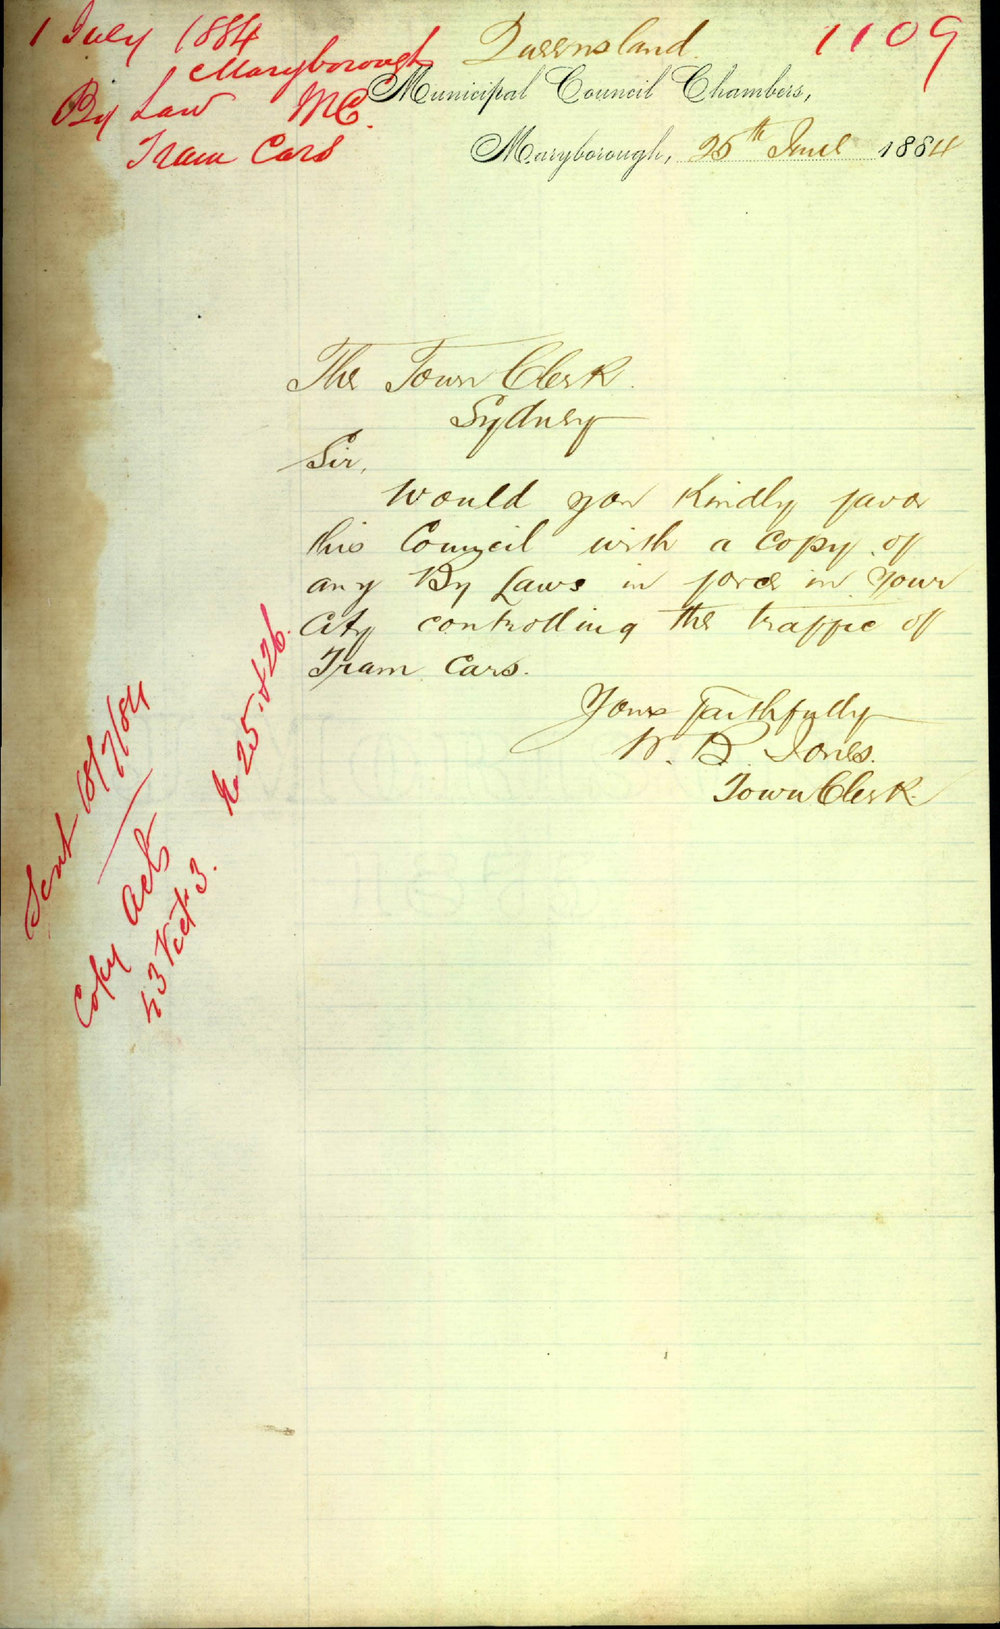 1 July 1884
Maryborough
By Law M.C.
Tram Cars
1109
Queensland
Municipal Council Chambers,
Maryborough, 25th June 1884
The Town Clerk.
Sydney
Sir,
Would you kindly favor
this Council with a copy of
any By Laws in force in Your
City controlling the traffic of
Tram Cars.
Yours faithfully
W. B. Jones.
Town Clerk.
Sent 18/7/84
Copy Acts
43 Vict 3.
No 25 of 26.